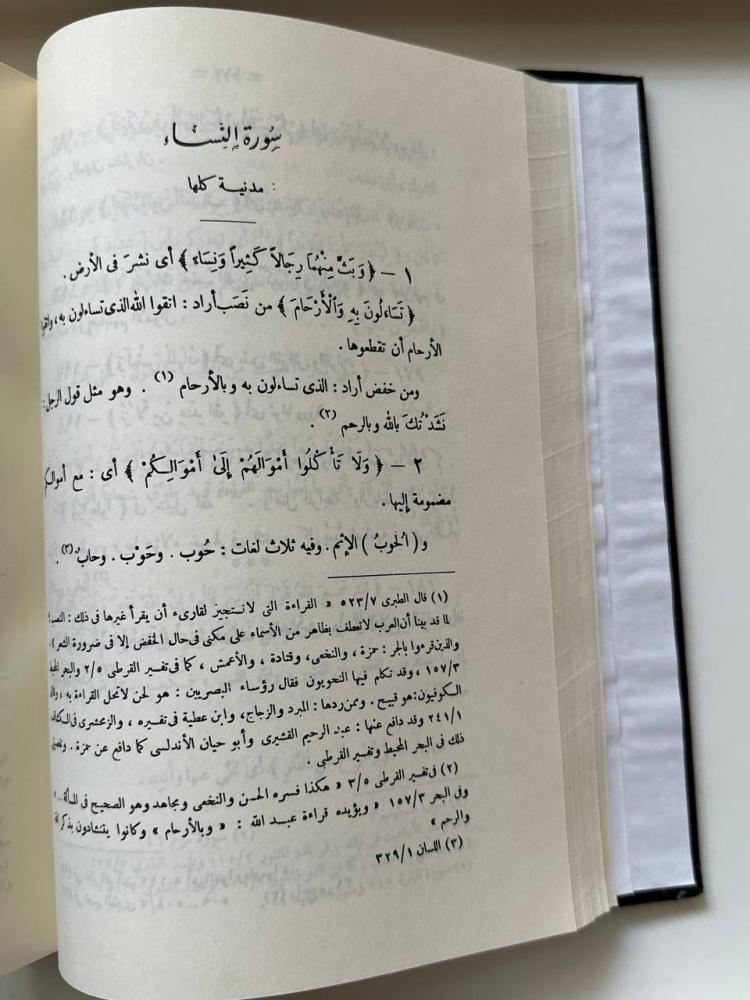 سورة النساء
مدنية كلها :
١ – ﴿ وَبَثَّ مِنْهُمَا رِجَالاً كَثِيراً وَنِسَاءً ﴾ أى نشرَ فى الأرض .
﴿ تَسَاءَلُونَ بِهِ وَالْأَرْحَامَ ﴾ من نَصَب أراد : اتقوا الله الذى تساءلون به ، واتقوا
الأرحام أن تقطعوها .
ومن خفض أراد : الذى تساءلون به وبالأرحام (١) . وهو مثل قول الرجل :
نَشَدْتُكَ بالله وبالرحم (٢) .
٢ – ﴿ وَلَا تَأْكُلُوا أَمْوَالَهُمْ إِلَىٰ أَمْوَالِكُمْ ﴾ أى : مع أموالكم
مضمومة إليها .
و ( الحُوبُ ) الإثم . وفيه ثلاث لغات : حُوب . وحَوْب . وحاب (٣) .
(١) قال الطبرى ٥٢٣/٧ « القراءة التى لانستجيز لقارىء أن يقرأ غيرها فى ذلك : النصب
لما قد بينا أن العرب لاتعطف بظاهر من الأسماء على مكنى فى حال الخفض إلا فى ضرورة الشعر »
والذين قرءوا بالجر : حمزة ، والنخعى ، وقتادة ، والأعمش ، كما فى تفسير القرطى ٢/٥ والبحر المحيط
١٥٧/٣ ، وقد تكلم فيها النحويون فقال رؤساء البصريين : هو لحن لاتحل القراءة به ،
الكوفيون : هو قبيح . وممن ردها : المبرد والزجاج ، وابن عطية فى تفسيره ، والزمخشرى فى الكشاف
٢٤١/١ وقد دافع عنها : عبد الرحيم القشيرى وأبو حيان الأندلسى كما دافع عن حمزة .
ذلك فى البحر المحيط وتفسير القرطبى .
(٢) فى تفسير القرطى ٣/٥ « هكذا فسره الحسن والنخعى ومجاهد وهو الصحيح فى المسألة .. »
وفى البحر ١٥٧/٣ « ويؤيده قراءة عبد الله : « وبالأرحام » وكانوا يتناشدون بذكر الله
والرحم »
(٣) اللسان ٣٢٩/١